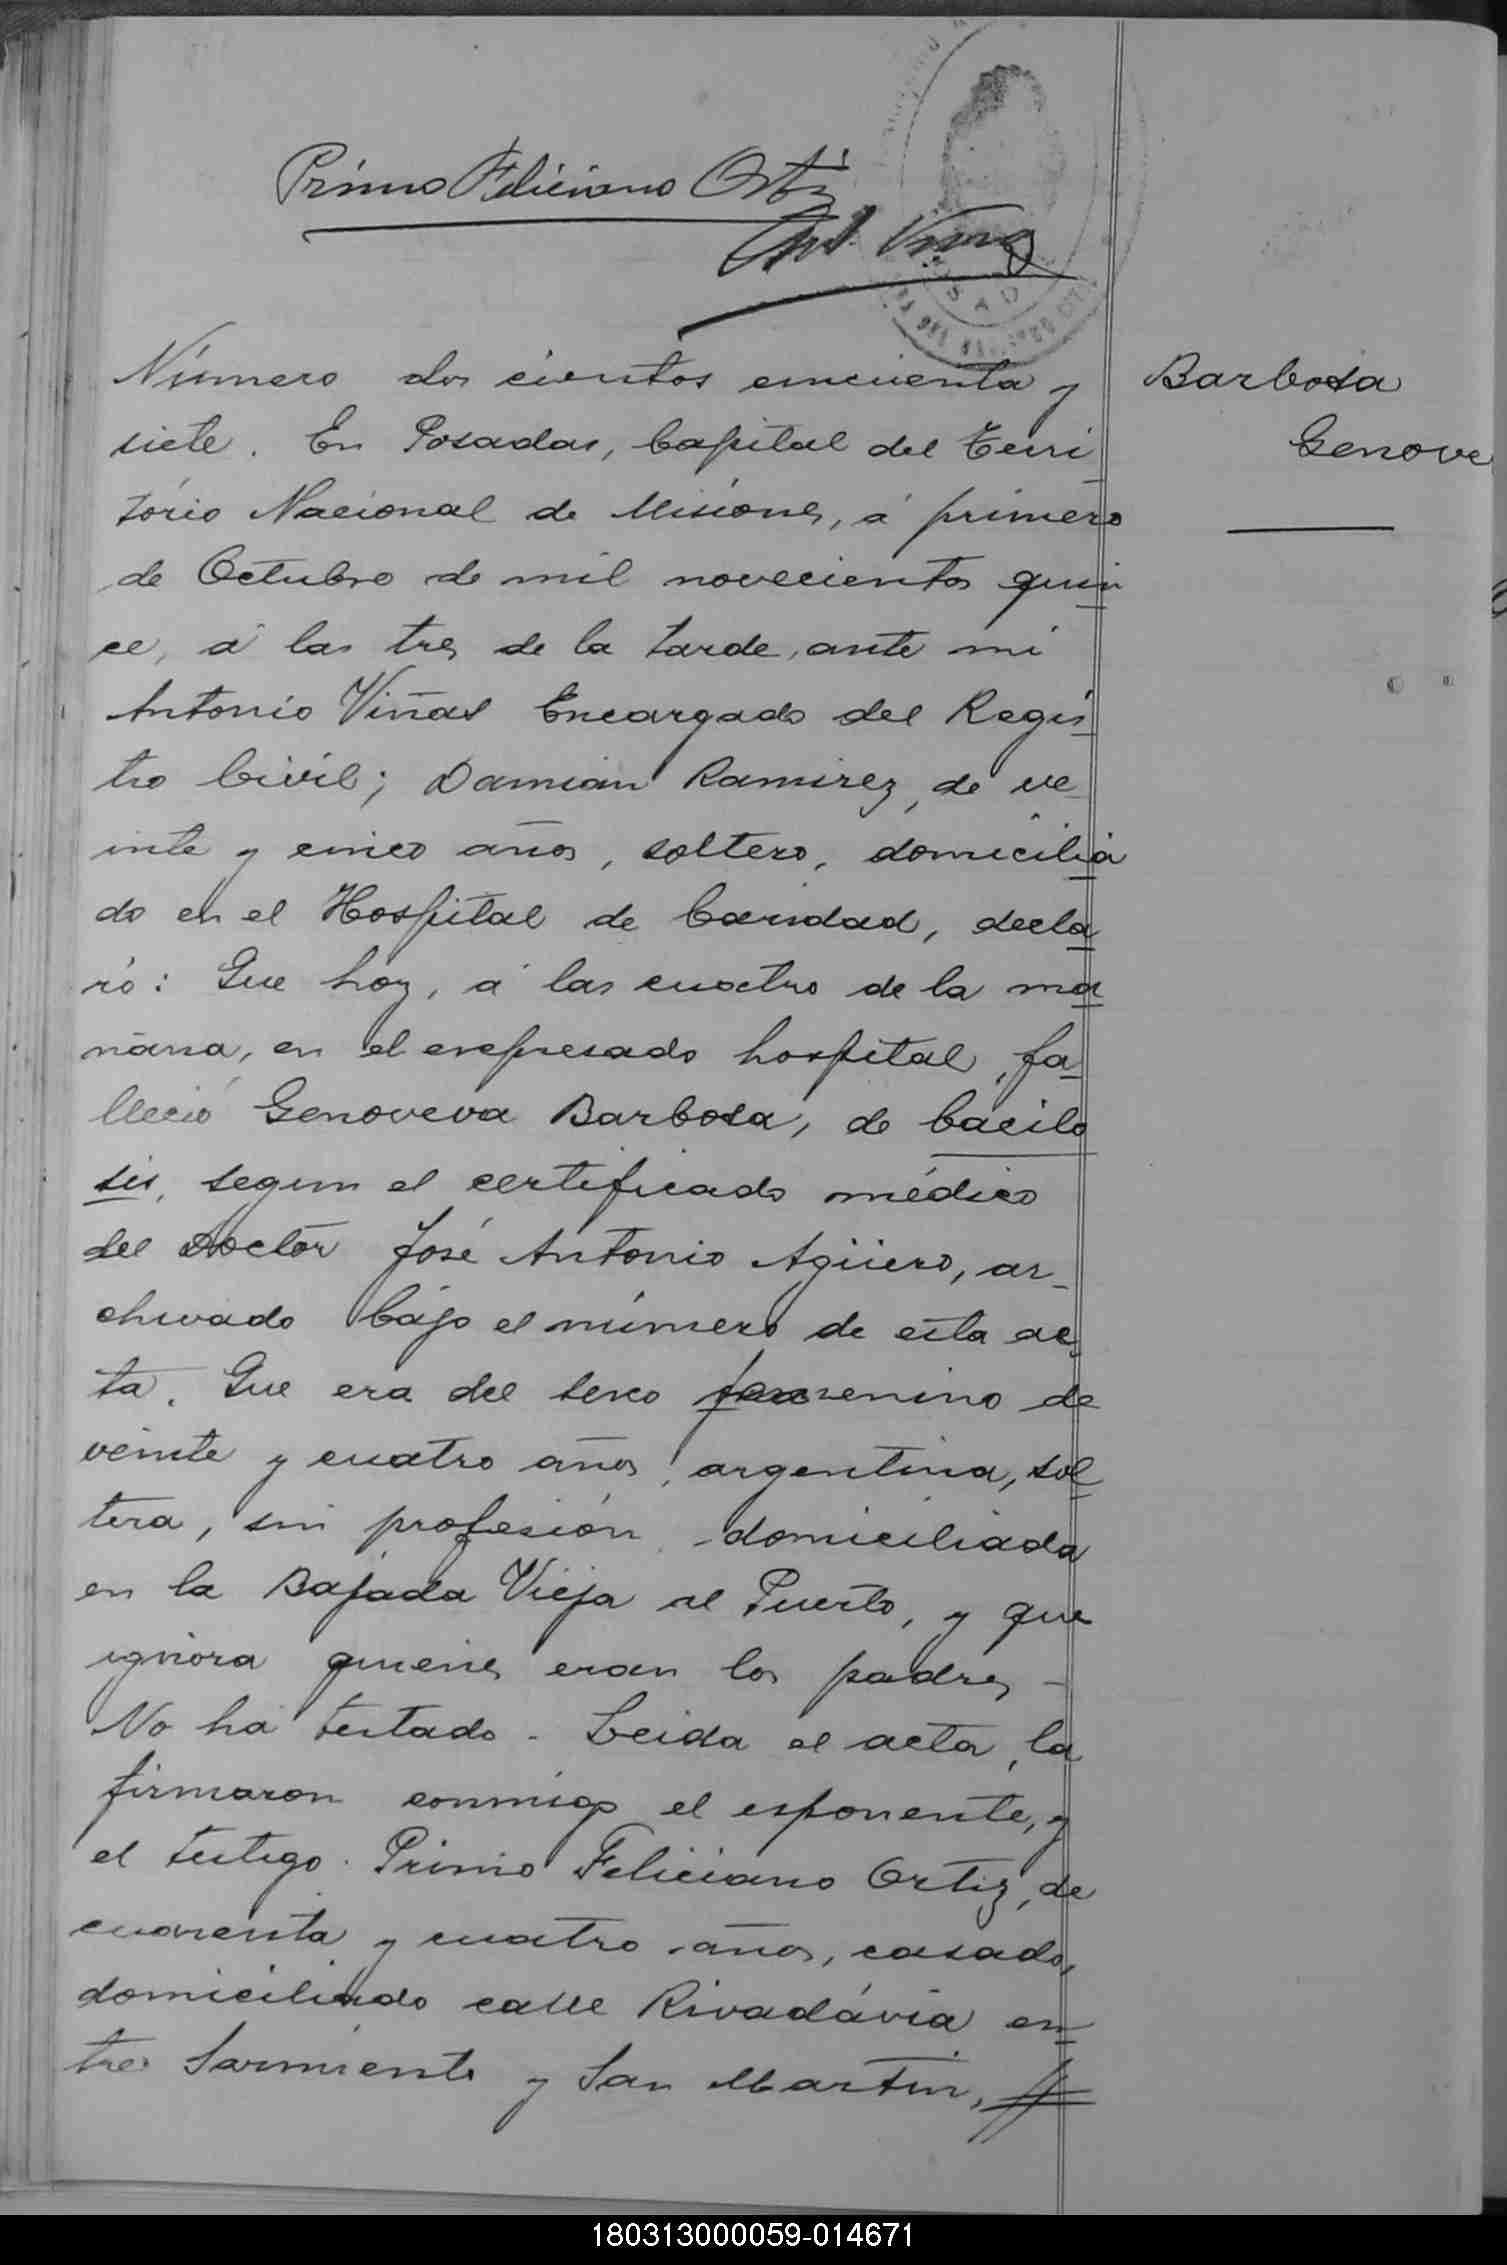 Primo Feliciano Ortiz
Ant. Viñas
Número dos cientos cincuenta y
siete. En Posadas, Capital del Terri
tório Nacional de Misiones, á primero
de Octubre de mil novecientos quin
ce, á las tres de la tarde, ante mi
Antonio Viñas Encargado del Regis
tro Civil; Damian Ramirez, de ve
inte y cinco años, soltero, domicilia
do en el Hospital de Caridad, decla
ró: Que hoy, á las cuatro de la ma
ñana, en el expresado hospital, fa
lleció Genoveva Barbosa, de bacilo
sis, segun el certificado médico
del Doctor José Antonio Agüero, ar
chivado bajo el número de esta ac
ta. Que era del sexo femenino de
veinte y cuatro años, argentina, sol
tera, sin profesión, domiciliada
en la Bajada Vieja al Puerto, y que
ignora quienes eran los padres -
No ha testado - Leida el acta, la
firmaron conmigo el esponente, y
el testigo. Primo Feliciano Ortiz, de
cuarenta y cuatro años, casado,
domiciliado calle Rivadávia en
tre Sarmiento y San Martin, //
Barbosa
Genove
180313000059-014671